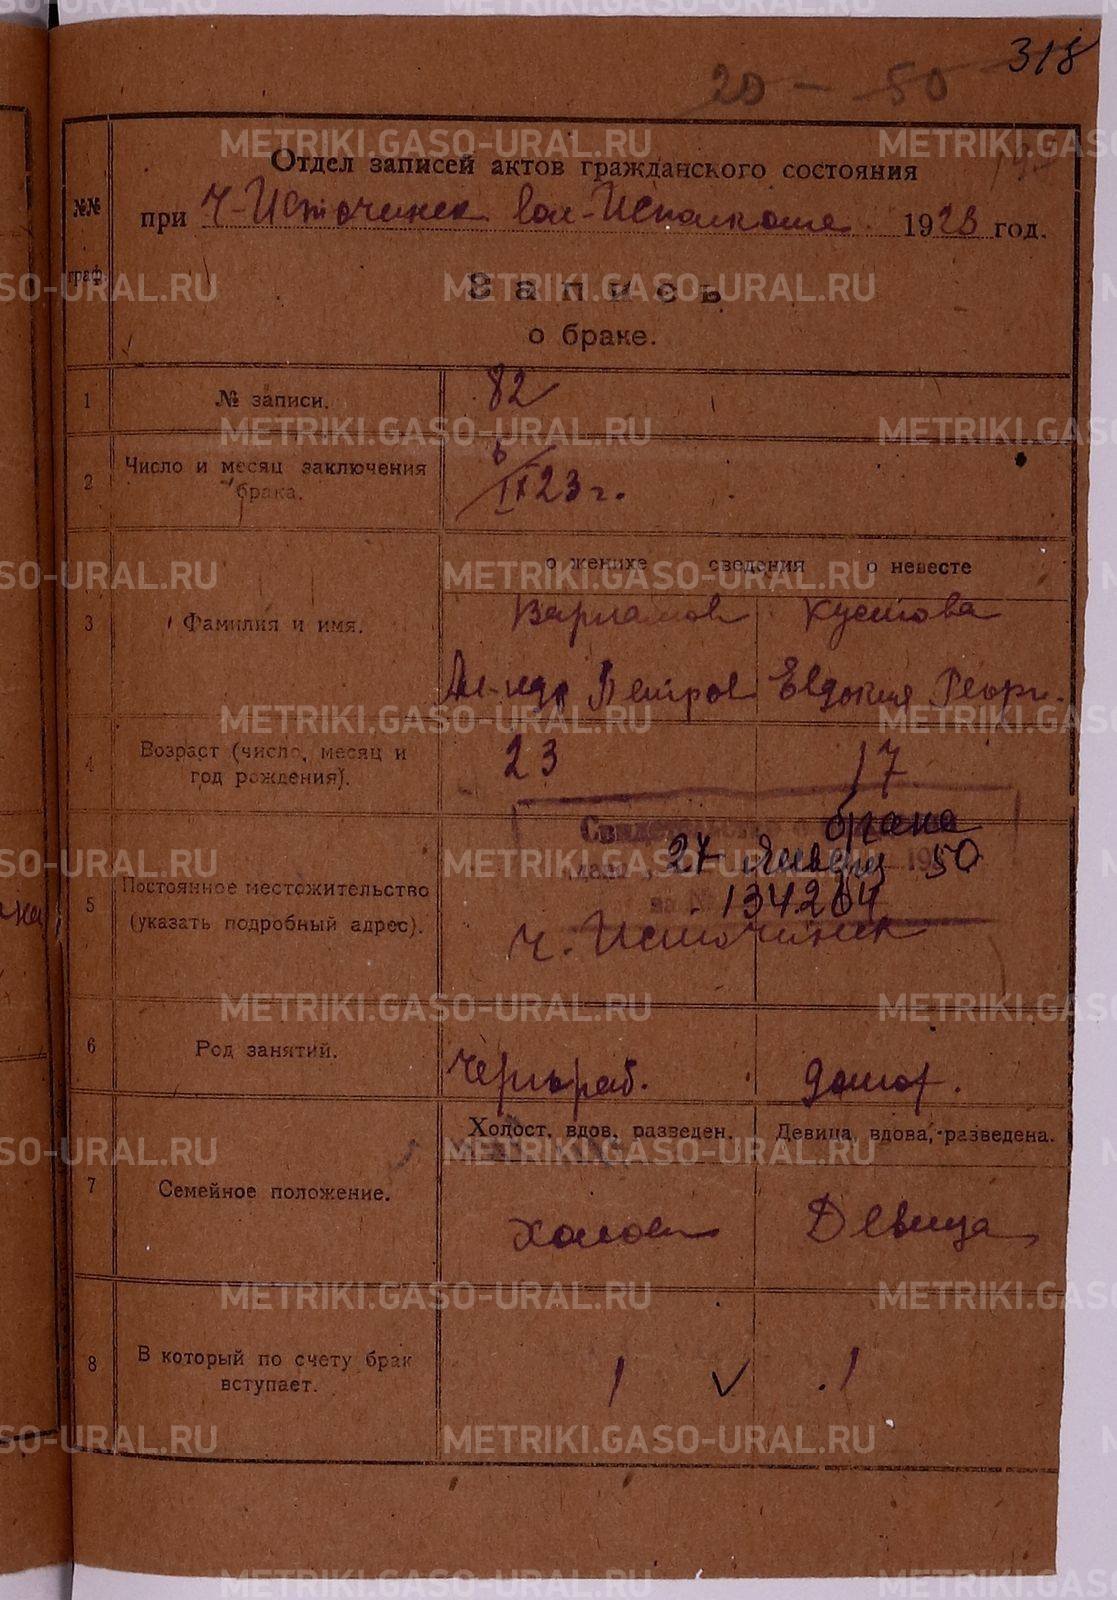 318
20 - 50
Отдел записей актов гражданского состояния
№№ граф.
при Ч-Источинск. Вол-Исполкоме 1923 год.
Запись
о браке.
1 № записи. 82
2 Число и месяц заключения брака. 6/IX 23 г.
о женихе сведения о невесте
3 Фамилия и имя. Варламов Кустова
Ал-ндр Петров Евдокия Георги.
4 Возраст (число, месяц и год рождения). 23 17
Свидетельство о браке
27 января 1950
№ 134264
5 Постоянное местожительство (указать подробный адрес). Ч. Источинск
6 Род занятий. Чернораб. домох.
Холост, вдов, разведен. Девица, вдова, разведена.
7 Семейное положение. Холост Девица
8 В который по счету брак вступает. 1 1
METRIKI.GASO-URAL.RU